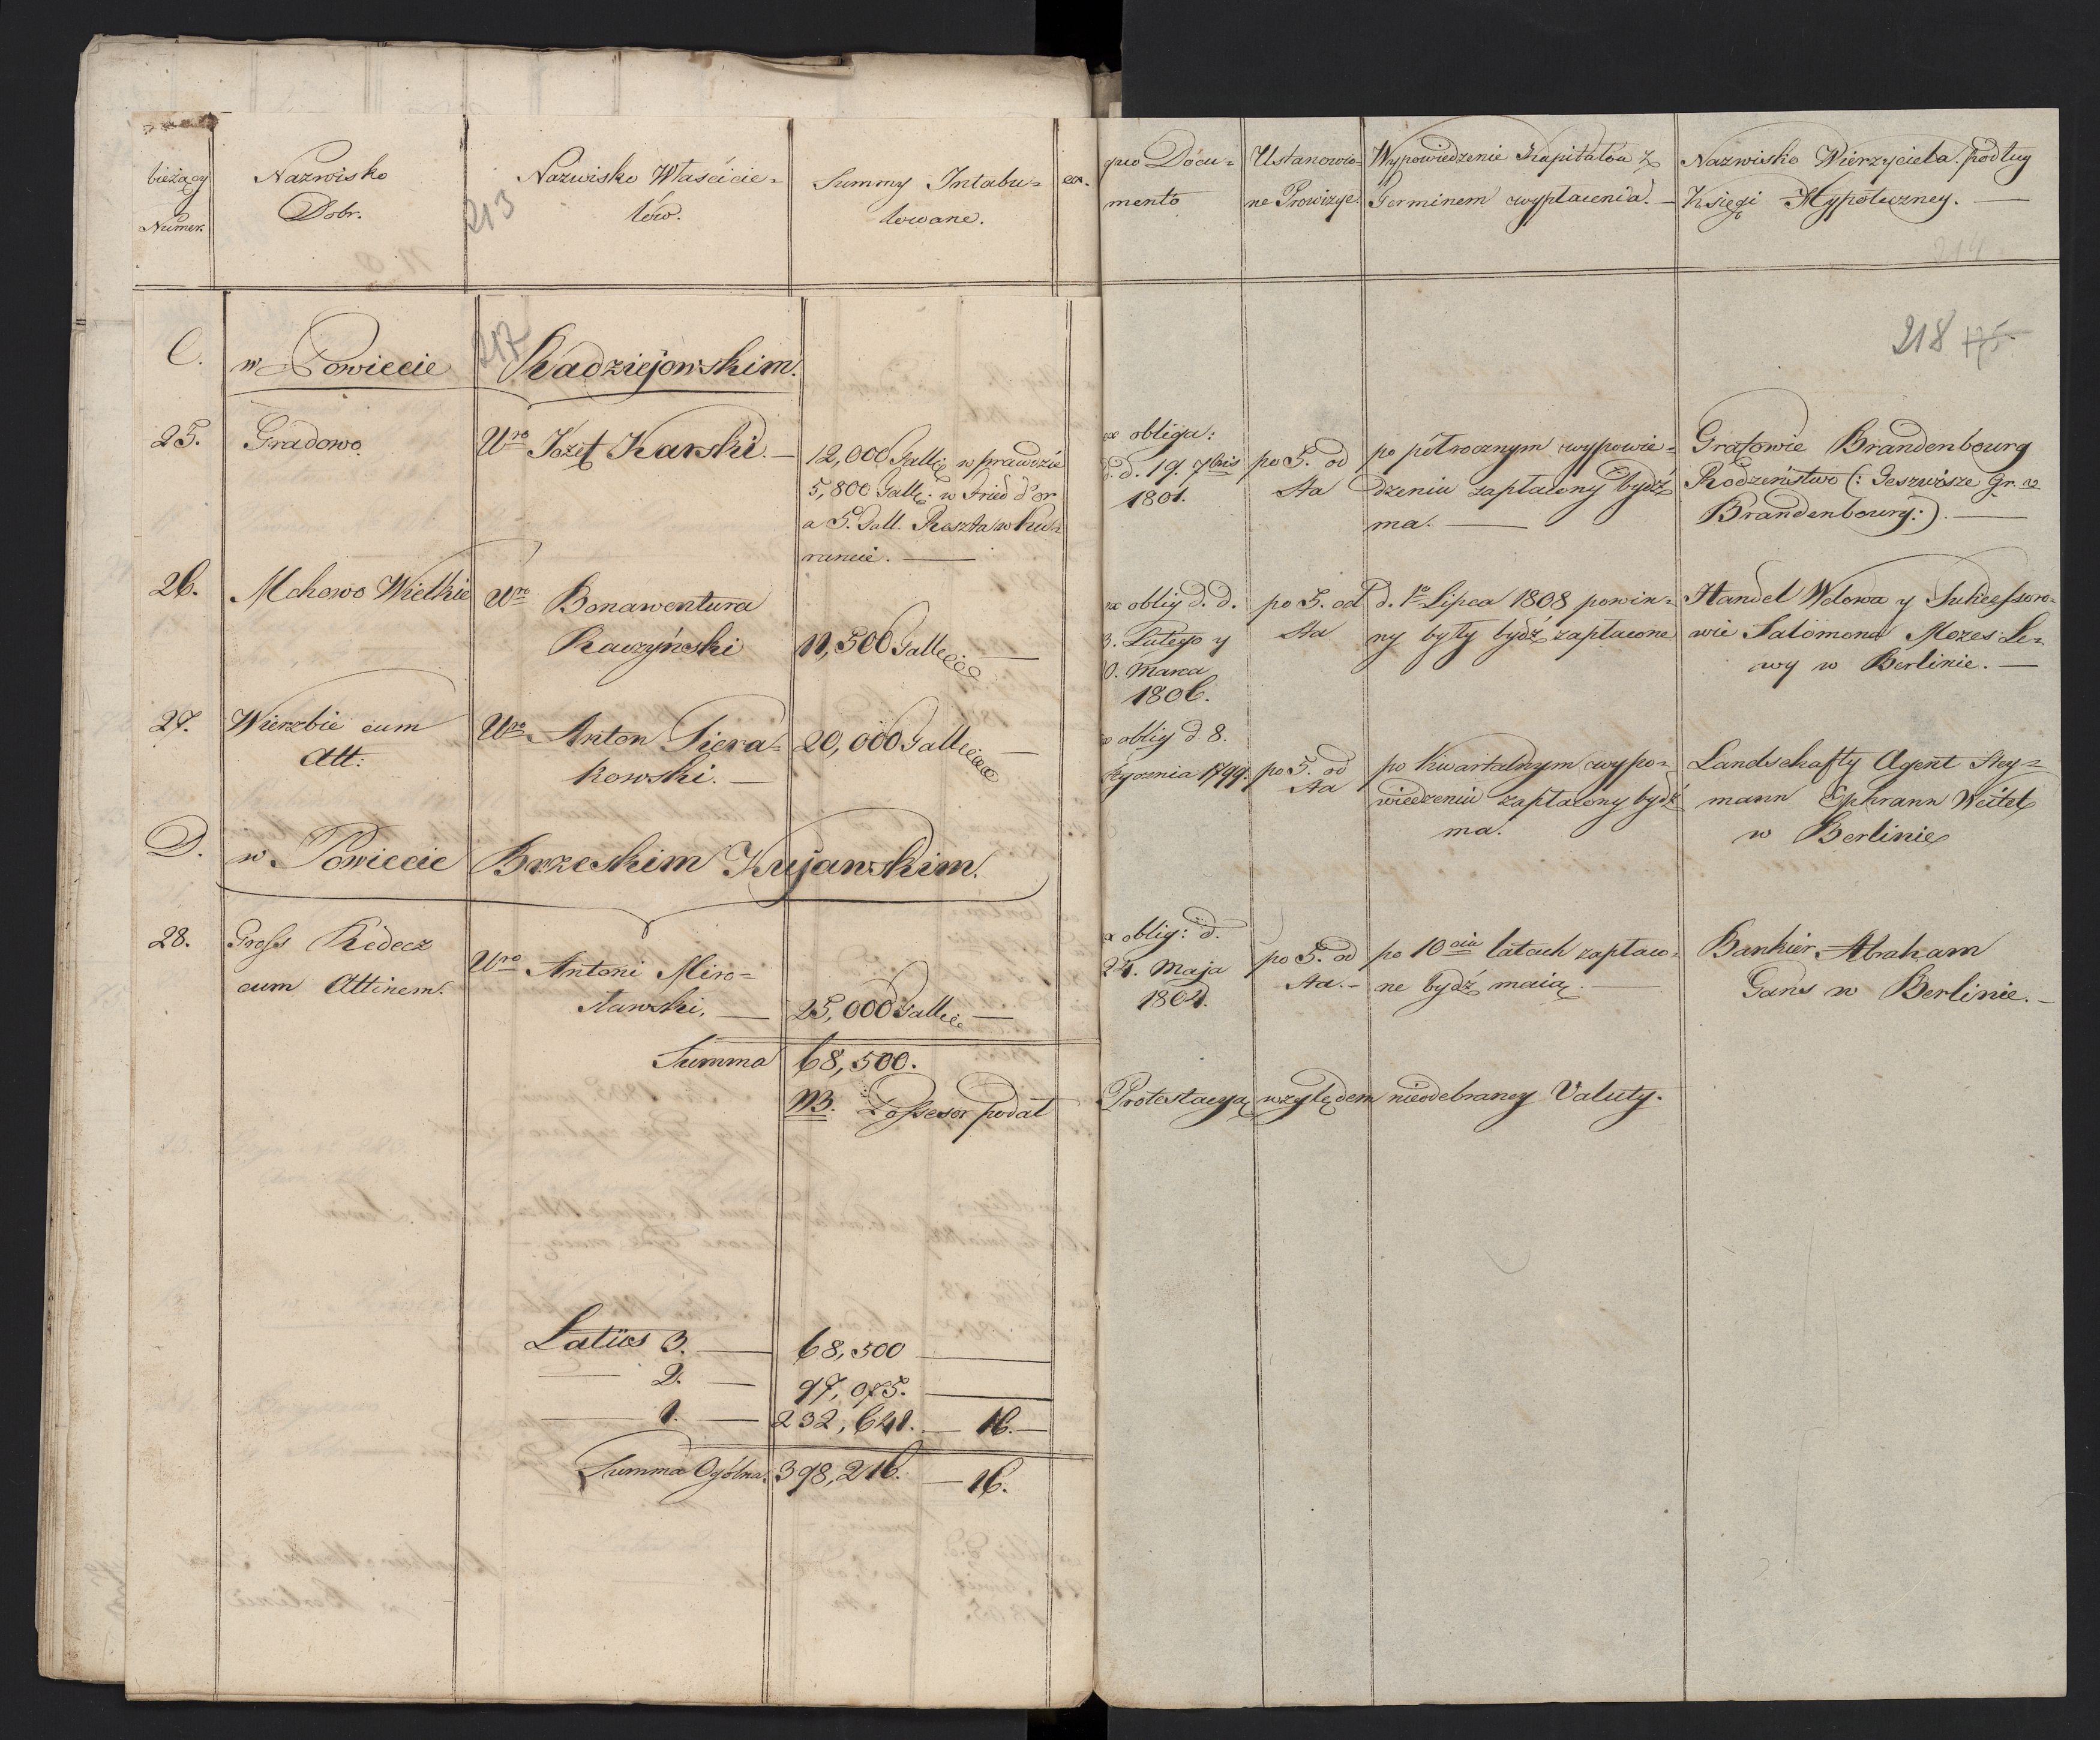 bieżący Numer.
Nazwisko Dobr.
Nazwisko Właścicie=
lów.
Summy Intabu=
lowane.
ex.
quo Docu=
mento
Ustanowio=
ne Prowizye
Wypowiedzenie Kapitałów z
Terminem wypłacenia. —
Nazwisko Wierzyciela podług
Księgi Hypoteczney. —
213
217
218 175
C. w Powiecie Radziejowskim.
25. Gradowo. Uro Józef Karski. —
12,000 Tall. w prawdzie
5,800 Tall: w Fried d'or
a 5. Tall. Reszta w Ku=
rancie. —
ex obligu:
d. d. 19. 7bris
1801.
po 5. od
Sta
po półrocznym wypowie=
dzeniu zapłacony bydź
ma. —
Grafowie Brandenbourg
Rodzeństwo (: Geszwisze Gr. v
Brandenbourg:). —
26. Mchowo Wielkie Uro Bonawentura
Raczyński 11,500 Tall —
ex oblig d. d.
3. Lutego y
0. Marca
1806.
po 5. od
Sta
d. 1o Lipca 1808 powin=
ny były bydź zapłacone
Handel Wdowa y Sukcessoro=
wie Salomona Mozes Le=
wy w Berlinie. —
27. Wierzbie cum
Att:
Uro Anton Siera=
kowski. —
20,000 Tall —
ex oblig d. 8.
Stycznia 1799.
po 5. od
Sta
po kwartalnym wypo=
wiedzeniu zapłacony bydź
ma.
Landschafty Agent Hey=
mann Ephraim Veitel
w Berlinie
D. w Powiecie Brzeskim Kujawskim.
28. Gross Kedecz
cum Attinem.
Uro Antoni Miro=
sławski, —
25,000 Tall —
ex oblig: d.
24. Maja
1804.
po 5. od
Sta. —
po 10ciu latach zapłaco=
ne bydź maią. —
Bankier Abraham
Gans w Berlinie. —
Summa 68,500.
NB. Possesor podał Protestacyą względem nieodebraney Valuty.
Latus 3. — 68,500 —
— 2. — 97,075. —
— 1. — 232,641. — 16. —
Summa Ogólna. 398,216. — 16.